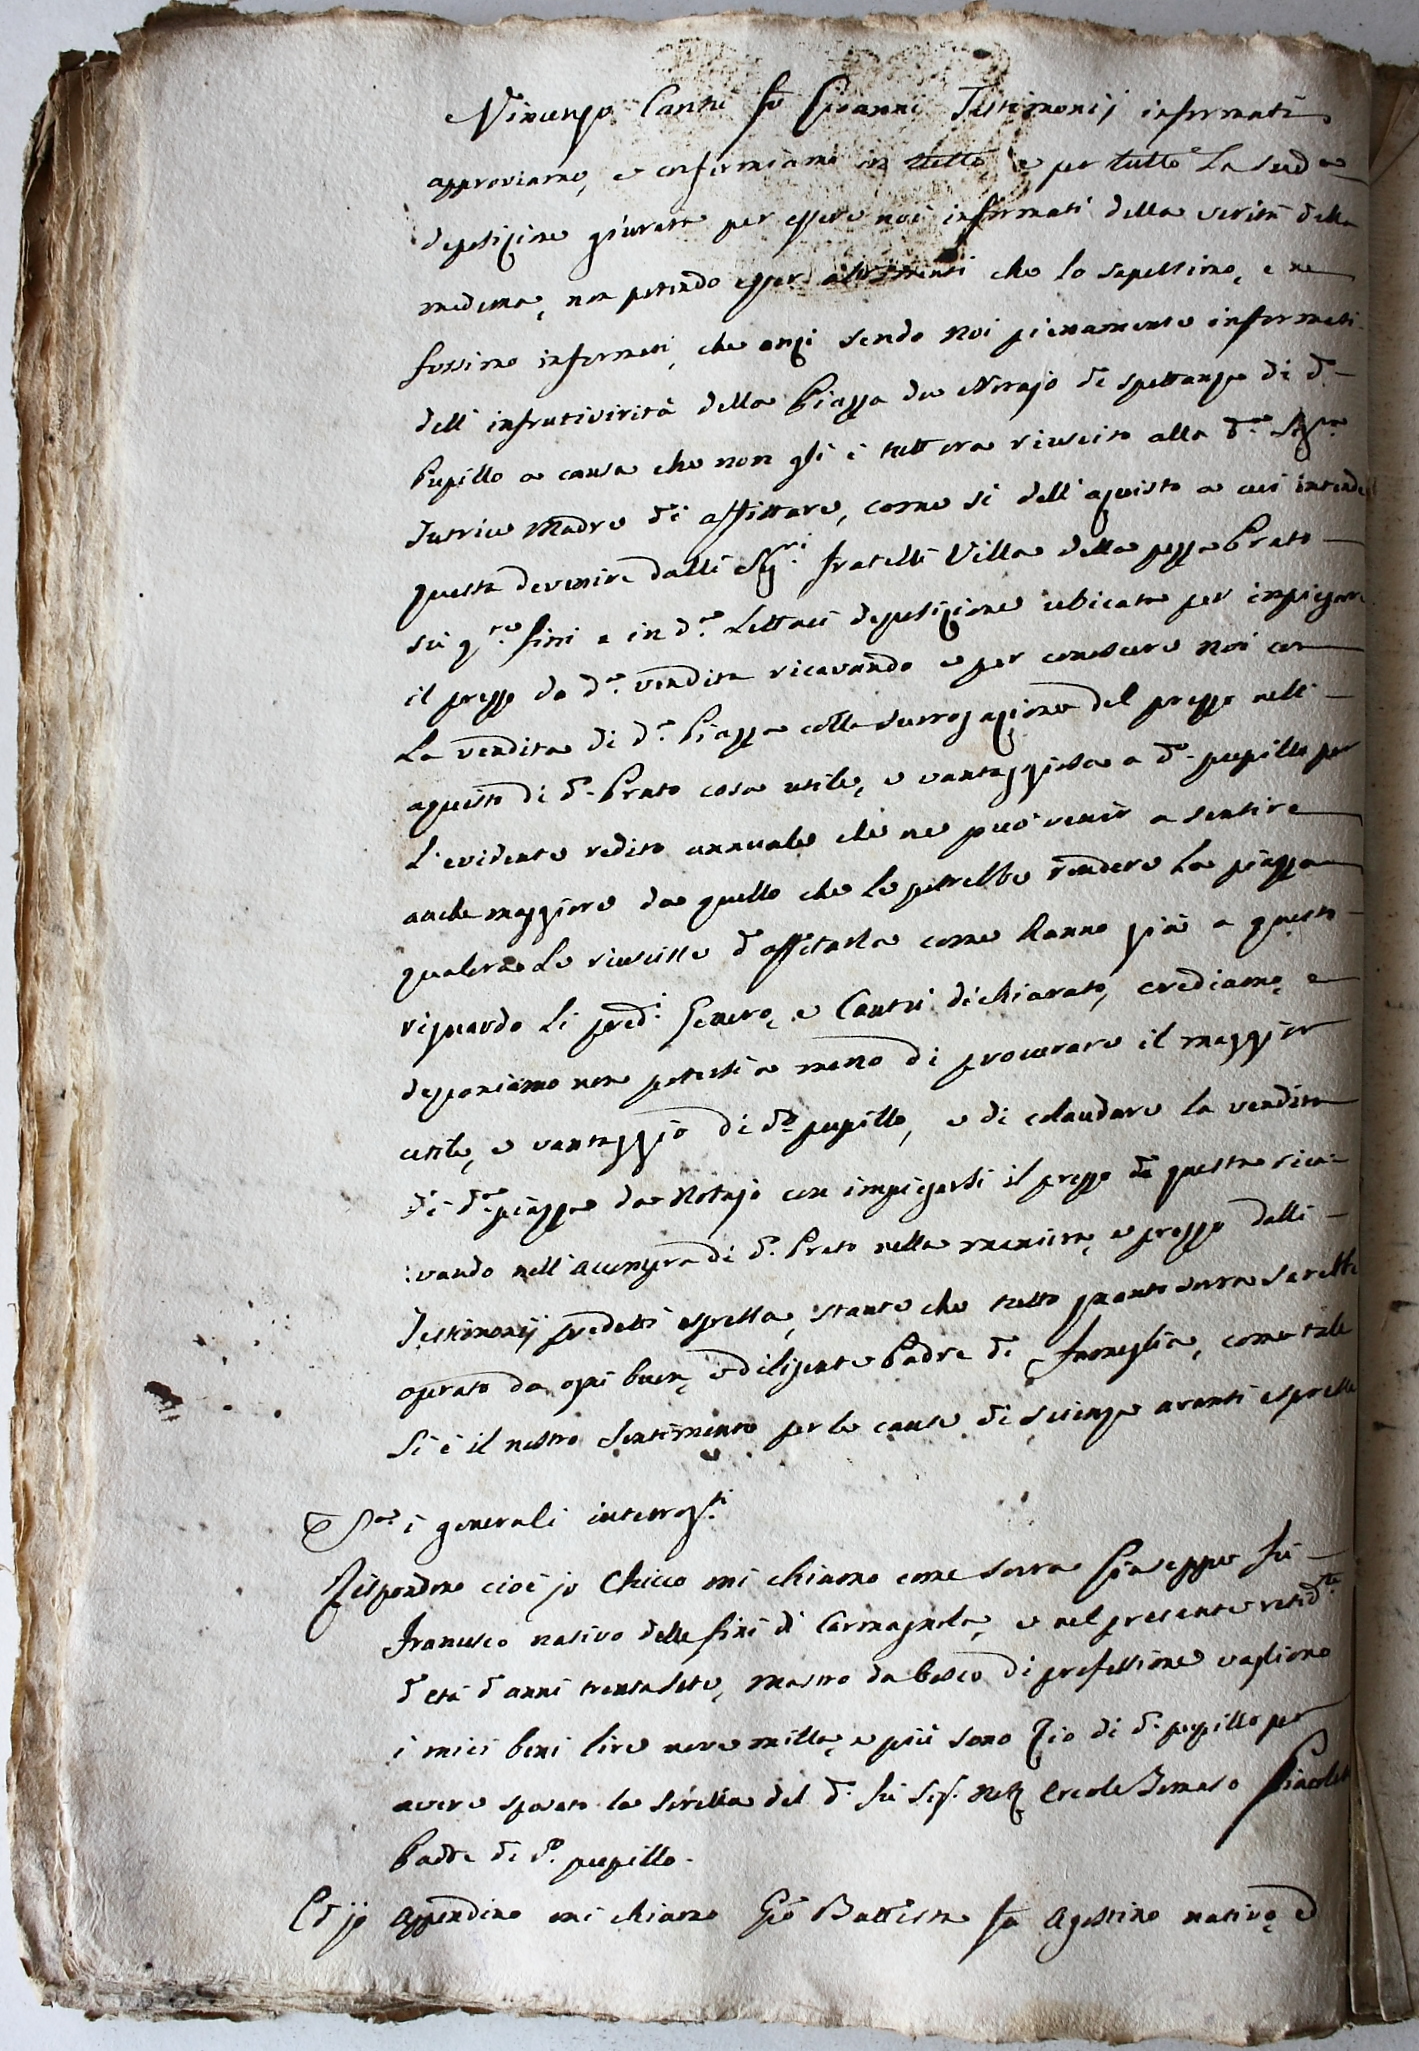 Vincenzo Cantù fu Giovanni Testimonij informati
approviamo, e confermiamo in tutto, e per tutto La sud.a
deposizione giurata per essere noi informati della verità della
medema, non potendo esser altrimenti che lo sapessimo, e ne
fossimo informati, che anzi sendo noi pienamente informati
dell'infrutiviertà della Piazza da Notajo di spettanza di d.o
Pupillo a causa che non gli è tutt'ora riuscito alla d.a Sig.ra
Tutrice Madre di affittare, come si dell'aquisto a cui intende
questa devenire dalli Sig.ri fratelli Villa della pezza Prato
su q.te fini e in d.a Lettaci deposizione ubicata per impiegare
il prezzo da d.a vendita ricavando e per conoscere noi con
La vendita di d.a Piazza colla surrogazione del prezzo nell'
aquisto di d.o Prato cosa utile, e vantaggiosa a d.o pupillo per
L'evidente redito annuale che ne può venir a sentire
anche maggiore da quello che le potrebbe rendere La piazza
qualora Le riuscisse d'affitarla come hanno già a questo
riguardo Li pred.i Genero, e Cantù dichiarato, crediamo, e
desponiamo non potersi a meno di procurare il maggior
utile, e vantaggio di d.o pupillo, e di colaudare la vendita
di d.a piazza da Notajo con impiegarsi il prezzo da questa rica=
:vando nell'accompra di d.o Prato nella maniera, e prezzo dalli
Testimonij predetti espressa, stante che tutto quanto sovra sarebbe
operato da ogni buon, e diligente Padre di Fameglia, come tale
Si è il nostro sentimento per le cause di scienza avanti espresse
S.a i generali interrog.ti
Rispondono cioè io Chicco mi chiamo come sovra Giuseppe fu
Francesco nativo delle fini di Carmagnola, e nel presente resid.te
d'età d'anni trentasette, mastro da bosco di professione vagliono
i miei beni lire nove milla, e più sono Zio di d.o pupillo per
avere sposato la sorella del d.o fu Sig. Not.o Ercole Tomaso
Padre di d.o pupillo.
Ed io Appendino mi chiamo Gio Battista fu Agostino nativo, ed